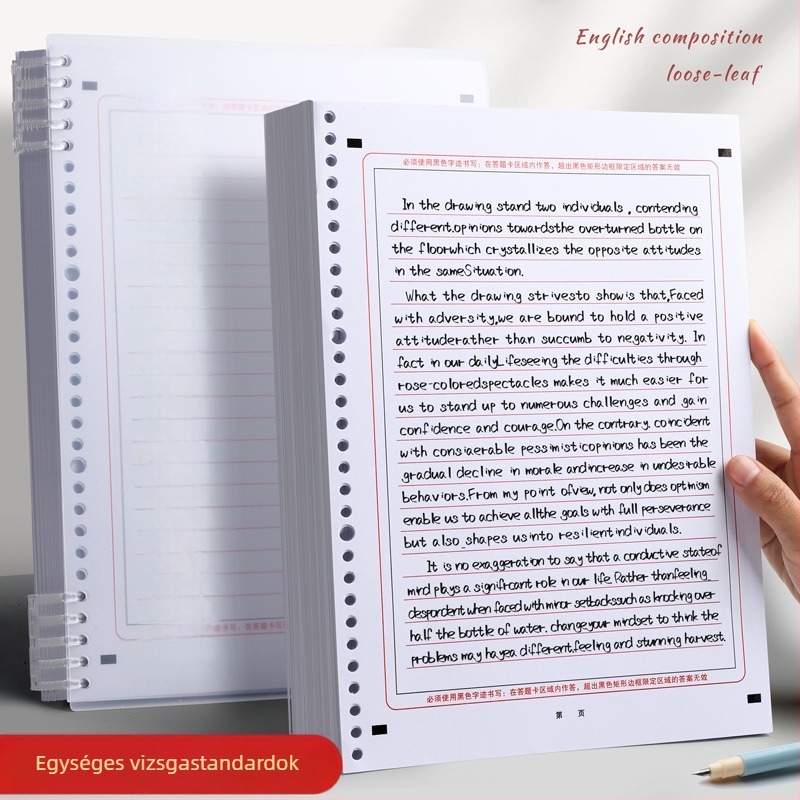 English composition
loose-leaf
必须使用黑色字迹书写：在答题卡区域内作答，超出黑色矩形边框限定区域的答案无效
In the drawing stand two individuals , contending
different.opinions towardsthe overturned bottle on
the floorwhich crystallizes the opposite attitudes
in the sameSituation.
What the drawing strivesto showis that,Faced
with adversity,we are bound to hold a positive
attituderather than succumb to negativity. In
fact in our daily Lifeseeing the difficulties through
rose-coloredspectacles makes it much easier for
us to stand up to numerous challenges and gain
confidence and courage.On the contrary. coincident
with consiaerable pessimisticopinions has been the
gradual decline in morale andincrease in undesirable
behaviors.From my point ofview, not only does optmism
enable us to achieve allthe goals with full perseverance
but also shapes us into resilient individuals.
It is no exaggeration to say that a conductive stateof
mind plays a significant role in our life. Rather thanfeeling
despondent when faced with minor setbackssuch as knocking over
half the bottle of water. change your mindset to think the
problems may hayea different.feeling and stunning harvest.
必须使用黑色字迹书写：在答题卡区域内作答，超出黑色矩形边框限定区域的答案无效
第 页
Egységes vizsgastandardok